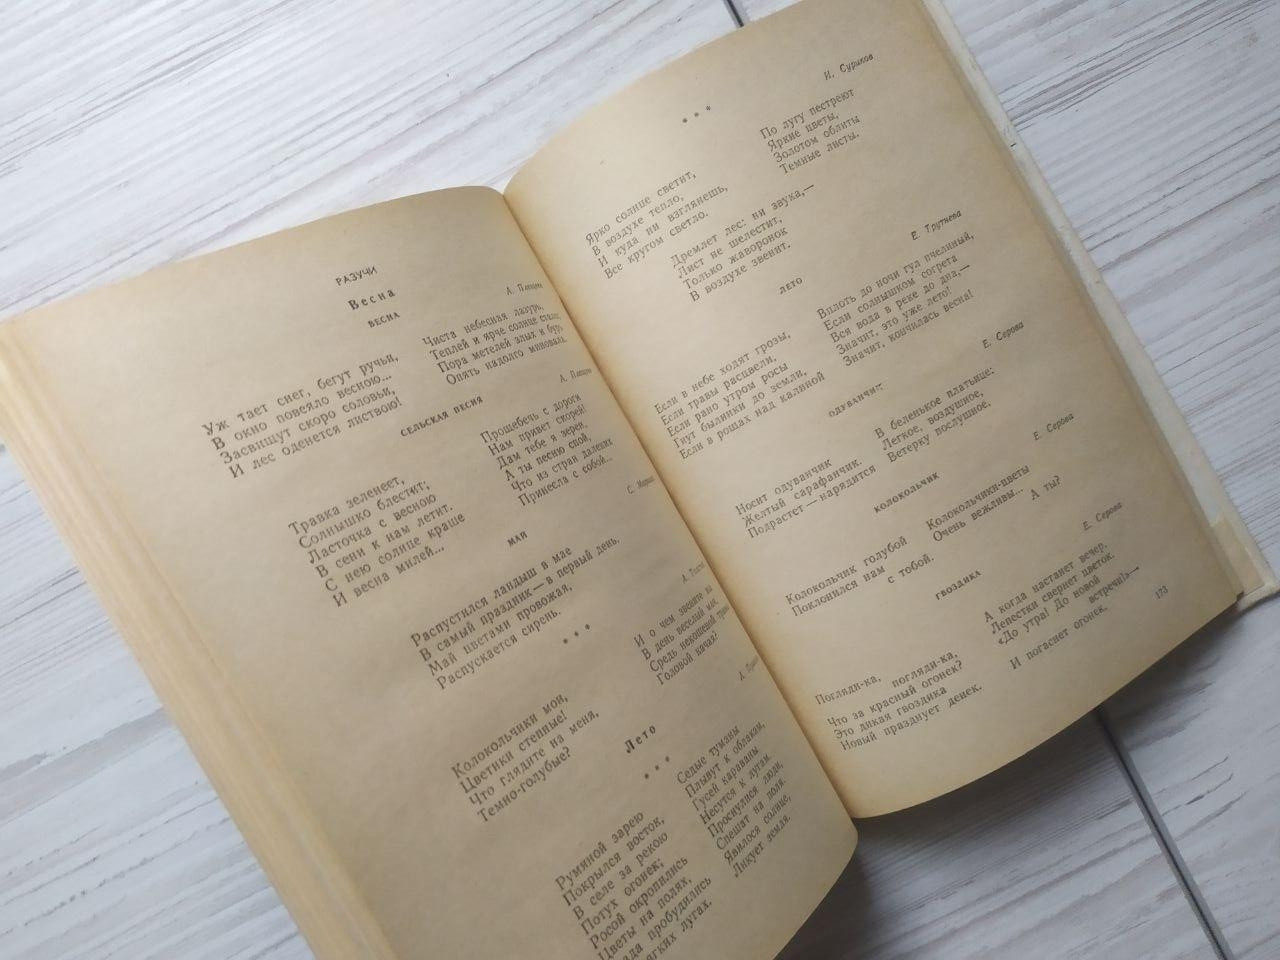 РАЗУЧИ
Весна
ВЕСНА
А. Плещеев
Уж тает снег, бегут ручьи,
В окно повеяло весною...
Засвищут скоро соловьи,
И лес оденется листвою!
Чиста небесная лазурь,
Теплей и ярче солнце стало,
Пора метелей злых и бурь
Опять надолго миновала.
СЕЛЬСКАЯ ПЕСНЯ
А. Плещеев
Травка зеленеет,
Солнышко блестит;
Ласточка с весною
В сени к нам летит.
С нею солнце краше
И весна милей...
Прощебечь с дороги
Нам привет скорей!
Дам тебе я зерен,
А ты песню спой,
Что из стран далеких
Принесла с собой...
МАЙ
С. Маршак
Распустился ландыш в мае
В самый праздник — в первый день.
Май цветами провожая,
Распускается сирень.
* * *
А. Толстой
Колокольчики мои,
Цветики степные!
Что глядите на меня,
Темно-голубые?
И о чем звените вы
В день веселый мая,
Средь некошеной травы
Головой качая?
Лето
* * *
А.
Румяной зарею
Покрылся восток,
В селе за рекою
Потух огонек;
Росой окропились
Цветы на полях,
пробудились
лугах.
Седые туманы
Плывут к облакам,
Гусей караваны
Несутся к лугам.
Проснулися люди,
Спешат на поля.
Явилося солнце,
Ликует земля.
* * *
И. Суриков
Ярко солнце светит,
В воздухе тепло,
И куда ни взглянешь,
Все кругом светло.
По лугу пестреют
Яркие цветы,
Золотом облиты
Темные листы.
Дремлет лес: ни звука,—
Лист не шелестит,
Только жаворонок
В воздухе звенит.
ЛЕТО
Е. Трутнева
Если в небе ходят грозы,
Если травы расцвели,
Если рано утром росы
Гнут былинки до земли,
Если в рощах над калиной
Вплоть до ночи гул пчелиный,
Если солнышком согрета
Вся вода в реке до дна,—
Значит, это уже лето!
Значит, кончилась весна!
ОДУВАНЧИК
Е. Серова
Носит одуванчик
Желтый сарафанчик.
Подрастет — нарядится
В беленькое платьице:
Легкое, воздушное,
Ветерку послушное.
КОЛОКОЛЬЧИК
Е. Серова
Колокольчик голубой
Поклонился нам с тобой.
Колокольчики-цветы
Очень вежливы... А ты?
ГВОЗДИКА
Е. Серова
Погляди-ка, погляди-ка,
Что за красный огонек?
Это дикая гвоздика
Новый празднует денек.
А когда настанет вечер,
Лепестки свернет цветок.
«До утра! До новой встречи!» —
И погаснет огонек.
173